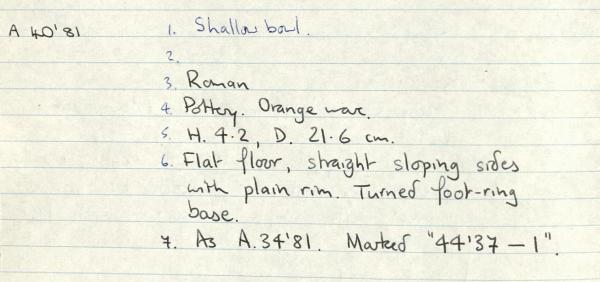 A 40'81 1. Shallow bowl.
2.
3. Roman
4. Pottery. Orange ware.
5. H. 4.2, D. 21.6 cm.
6. Flat floor, straight sloping sides
with plain rim. Turned foot-ring
base.
7. As A.34'81. Marked "44'37 – 1".